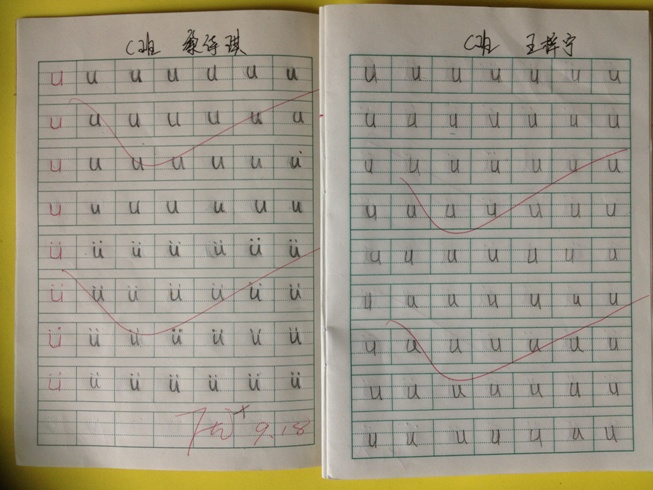 C班
u u u u u u u
u u u u u u u
u u u u u u u
u u u u u u u
ü ü ü ü ü ü ü
ü ü ü ü ü ü ü
ü ü ü ü ü ü ü
ü ü ü ü ü ü ü
优+ 9.18
C班 王梓宁
u u u u u u u
u u u u u u u
u u u u u u u
u u u u u u u
u u u u u u u
u u u u u u u
u u u u u u u
u u u u u u u
u u u u u u u